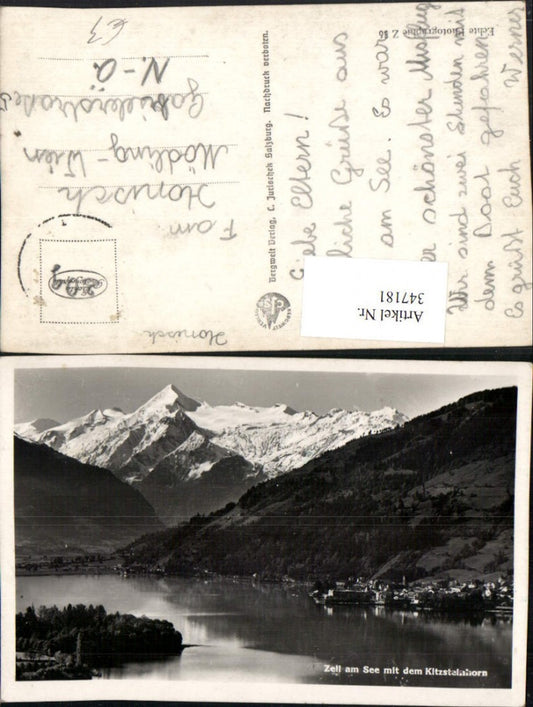 Echte Photographie Z 56
Liebe Eltern!
liche Grüße aus
am See. Es war
er schönster Ausflug
Wir sind zwei Stunden mit
dem Boot gefahren
Es grüßt Euch Werner
Artikel Nr.
347181
Bergwelt Verlag, C. Jurischek Salzburg. Nachdruck verboten.
Fam.
Honisch
Mödling-Wien
N-Ö
Honisch
Zell am See mit dem Kitzsteinhorn